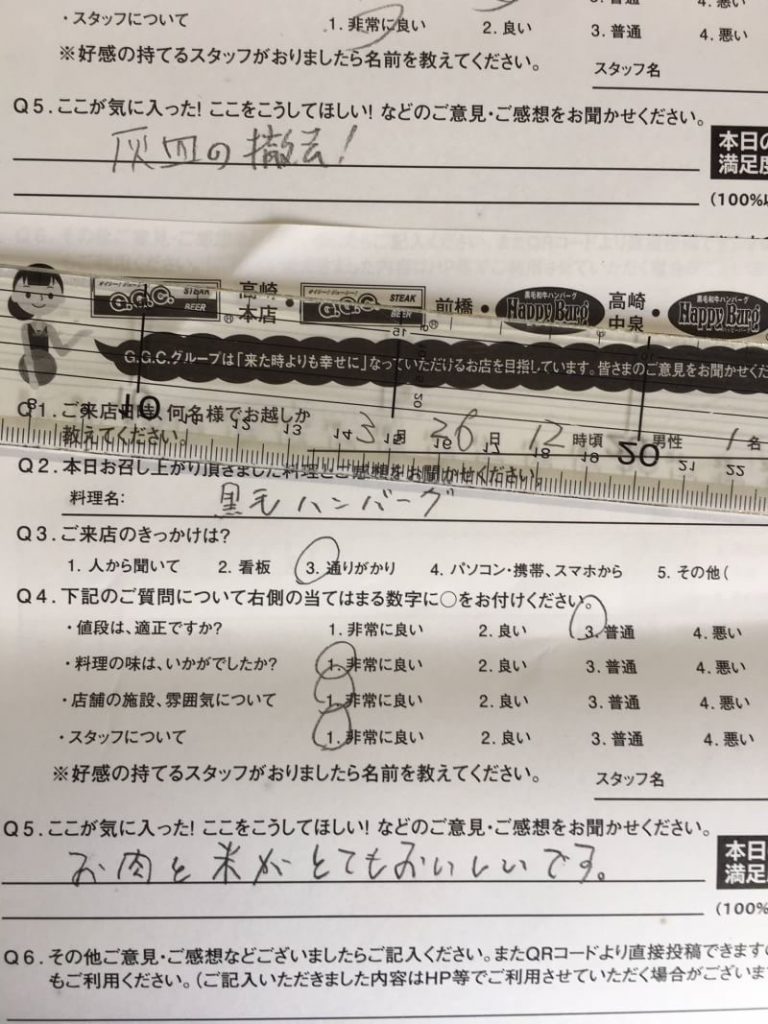 ・スタッフについて 1. 非常に良い 2. 良い 3. 普通 4. 悪い
※好感の持てるスタッフがおりましたら名前を教えてください。 スタッフ名
Q5. ここが気に入った! ここをこうしてほしい! などのご意見・ご感想をお聞かせください。
灰皿の撤去!
本日の
満足度
(100%
G.G.C. STEAK BEER 高崎本店・G.G.C. STEAK BEER 前橋・黒毛和牛ハンバーグ Happy Burg 高崎中泉・黒毛和牛ハンバーグ Happy Burg
G.G.C.グループは「来た時よりも幸せに」なっていただけるお店を目指しています。皆さまのご意見をお聞かせくだ
Q1. ご来店日時、何名様でお越しか
教えてください。 3 月 26 日 12 時頃 男性 1 名
10 12 13 14 15 16 18 19 20 21 22
Q2. 本日お召し上がり頂きました料理とご感想をお聞かせください。
料理名: 黒毛ハンバーグ
Q3. ご来店のきっかけは?
1. 人から聞いて 2. 看板 3. 通りがかり 4. パソコン・携帯、スマホから 5. その他(
Q4. 下記のご質問について右側の当てはまる数字に○をお付けください。
・値段は、適正ですか? 1. 非常に良い 2. 良い 3. 普通 4. 悪い
・料理の味は、いかがでしたか? 1. 非常に良い 2. 良い 3. 普通 4. 悪い
・店舗の施設、雰囲気について 1. 非常に良い 2. 良い 3. 普通 4. 悪い
・スタッフについて 1. 非常に良い 2. 良い 3. 普通 4. 悪い
※好感の持てるスタッフがおりましたら名前を教えてください。 スタッフ名
Q5. ここが気に入った! ここをこうしてほしい! などのご意見・ご感想をお聞かせください。
お肉と米がとてもおいしいです。
本日
満足
(100%
Q6. その他ご意見・ご感想などございましたらご記入ください。またQRコードより直接投稿できますの
もご利用ください。(ご記入いただきました内容はHP等でご利用させていただく場合がございま